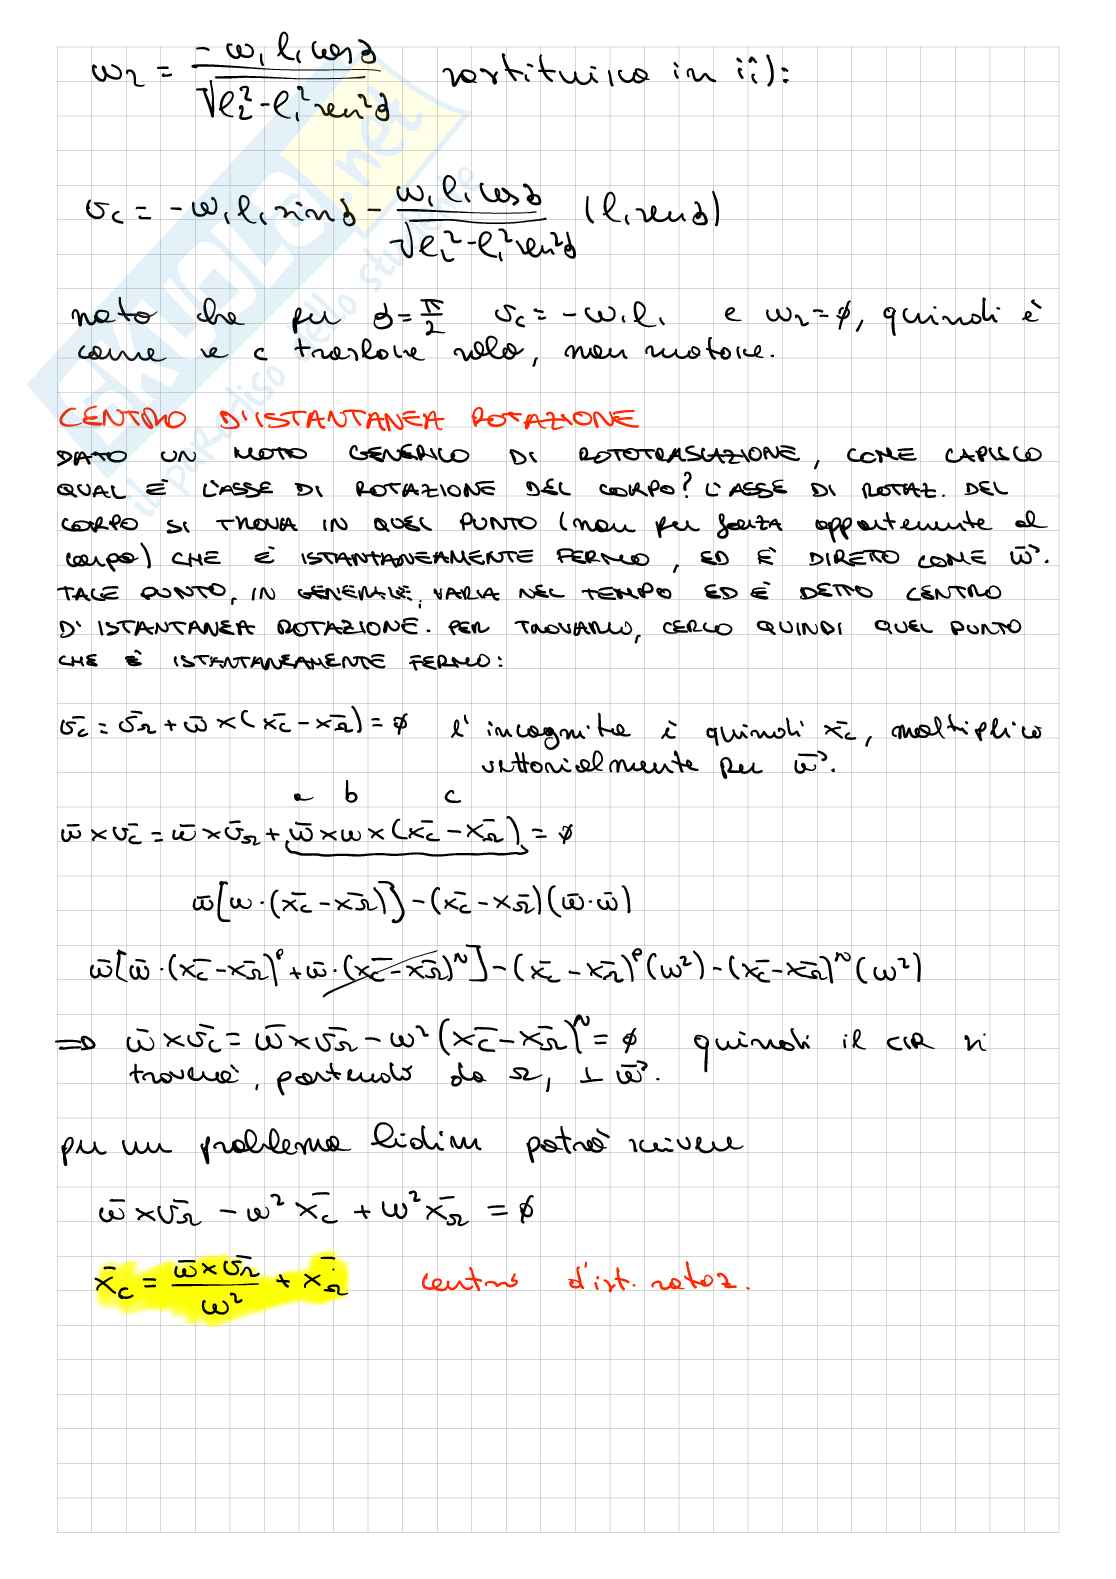 ω₂ = -ω₁ l₁ cosϑ / √(l₂² - l₁² sen²ϑ) sostituisco in ii):
v_c = -ω₁ l₁ sinϑ - ω₁ l₁ cosϑ / √(l₂² - l₁² sen²ϑ) (l₁ senϑ)
noto che per ϑ = π/2 v_c = -ω₁ l₁ e ω₂ = ∅, quindi è
come se c traslasse solo, non rotasse.
CENTRO D'ISTANTANEA ROTAZIONE
DATO UN MOTO GENERICO DI ROTOTRASLAZIONE, COME CAPISCO
QUAL È L'ASSE DI ROTAZIONE DEL CORPO? L'ASSE DI ROTAZ. DEL
CORPO SI TROVA IN QUEL PUNTO (non per forza appartenente al
corpo) CHE È ISTANTANEAMENTE FERMO, ED È DIRETTO COME ω̄.
TALE PUNTO, IN GENERALE, VARIA NEL TEMPO ED È DETTO CENTRO
D'ISTANTANEA ROTAZIONE. PER TROVARLO, CERCO QUINDI QUEL PUNTO
CHE È ISTANTANEAMENTE FERMO:
v̄_c = v̄_Ω + ω̄ × (x̄_c - x̄_Ω) = ∅ l'incognita è quindi x̄_c, moltiplico
vettorialmente per ω̄.
a b c
ω̄ × v̄_c = ω̄ × v̄_Ω + ω̄ × ω × (x̄_c - x̄_Ω) = ∅
ω̄[ω · (x̄_c - x̄_Ω)] - (x̄_c - x̄_Ω)(ω̄ · ω̄)
ω̄[ω̄ · (x̄_c - x̄_Ω)^P + ω̄ · (x̄_c - x̄_Ω)^N] - (x̄_c - x̄_Ω)^P (ω²) - (x̄_c - x̄_Ω)^N (ω²)
⇒ ω̄ × v̄_c = ω̄ × v̄_Ω - ω² (x̄_c - x̄_Ω)^N = ∅ quindi il CIR si
troverà, partendo da Ω, ⊥ ω̄.
per un problema bidim potrò scrivere
ω̄ × v̄_Ω - ω² x̄_c + ω² x̄_Ω = ∅
x̄_c = ω̄ × v̄_Ω / ω² + x̄_Ω centro d'ist. rotaz.
SKUOLA.net
il paradiso dello studente